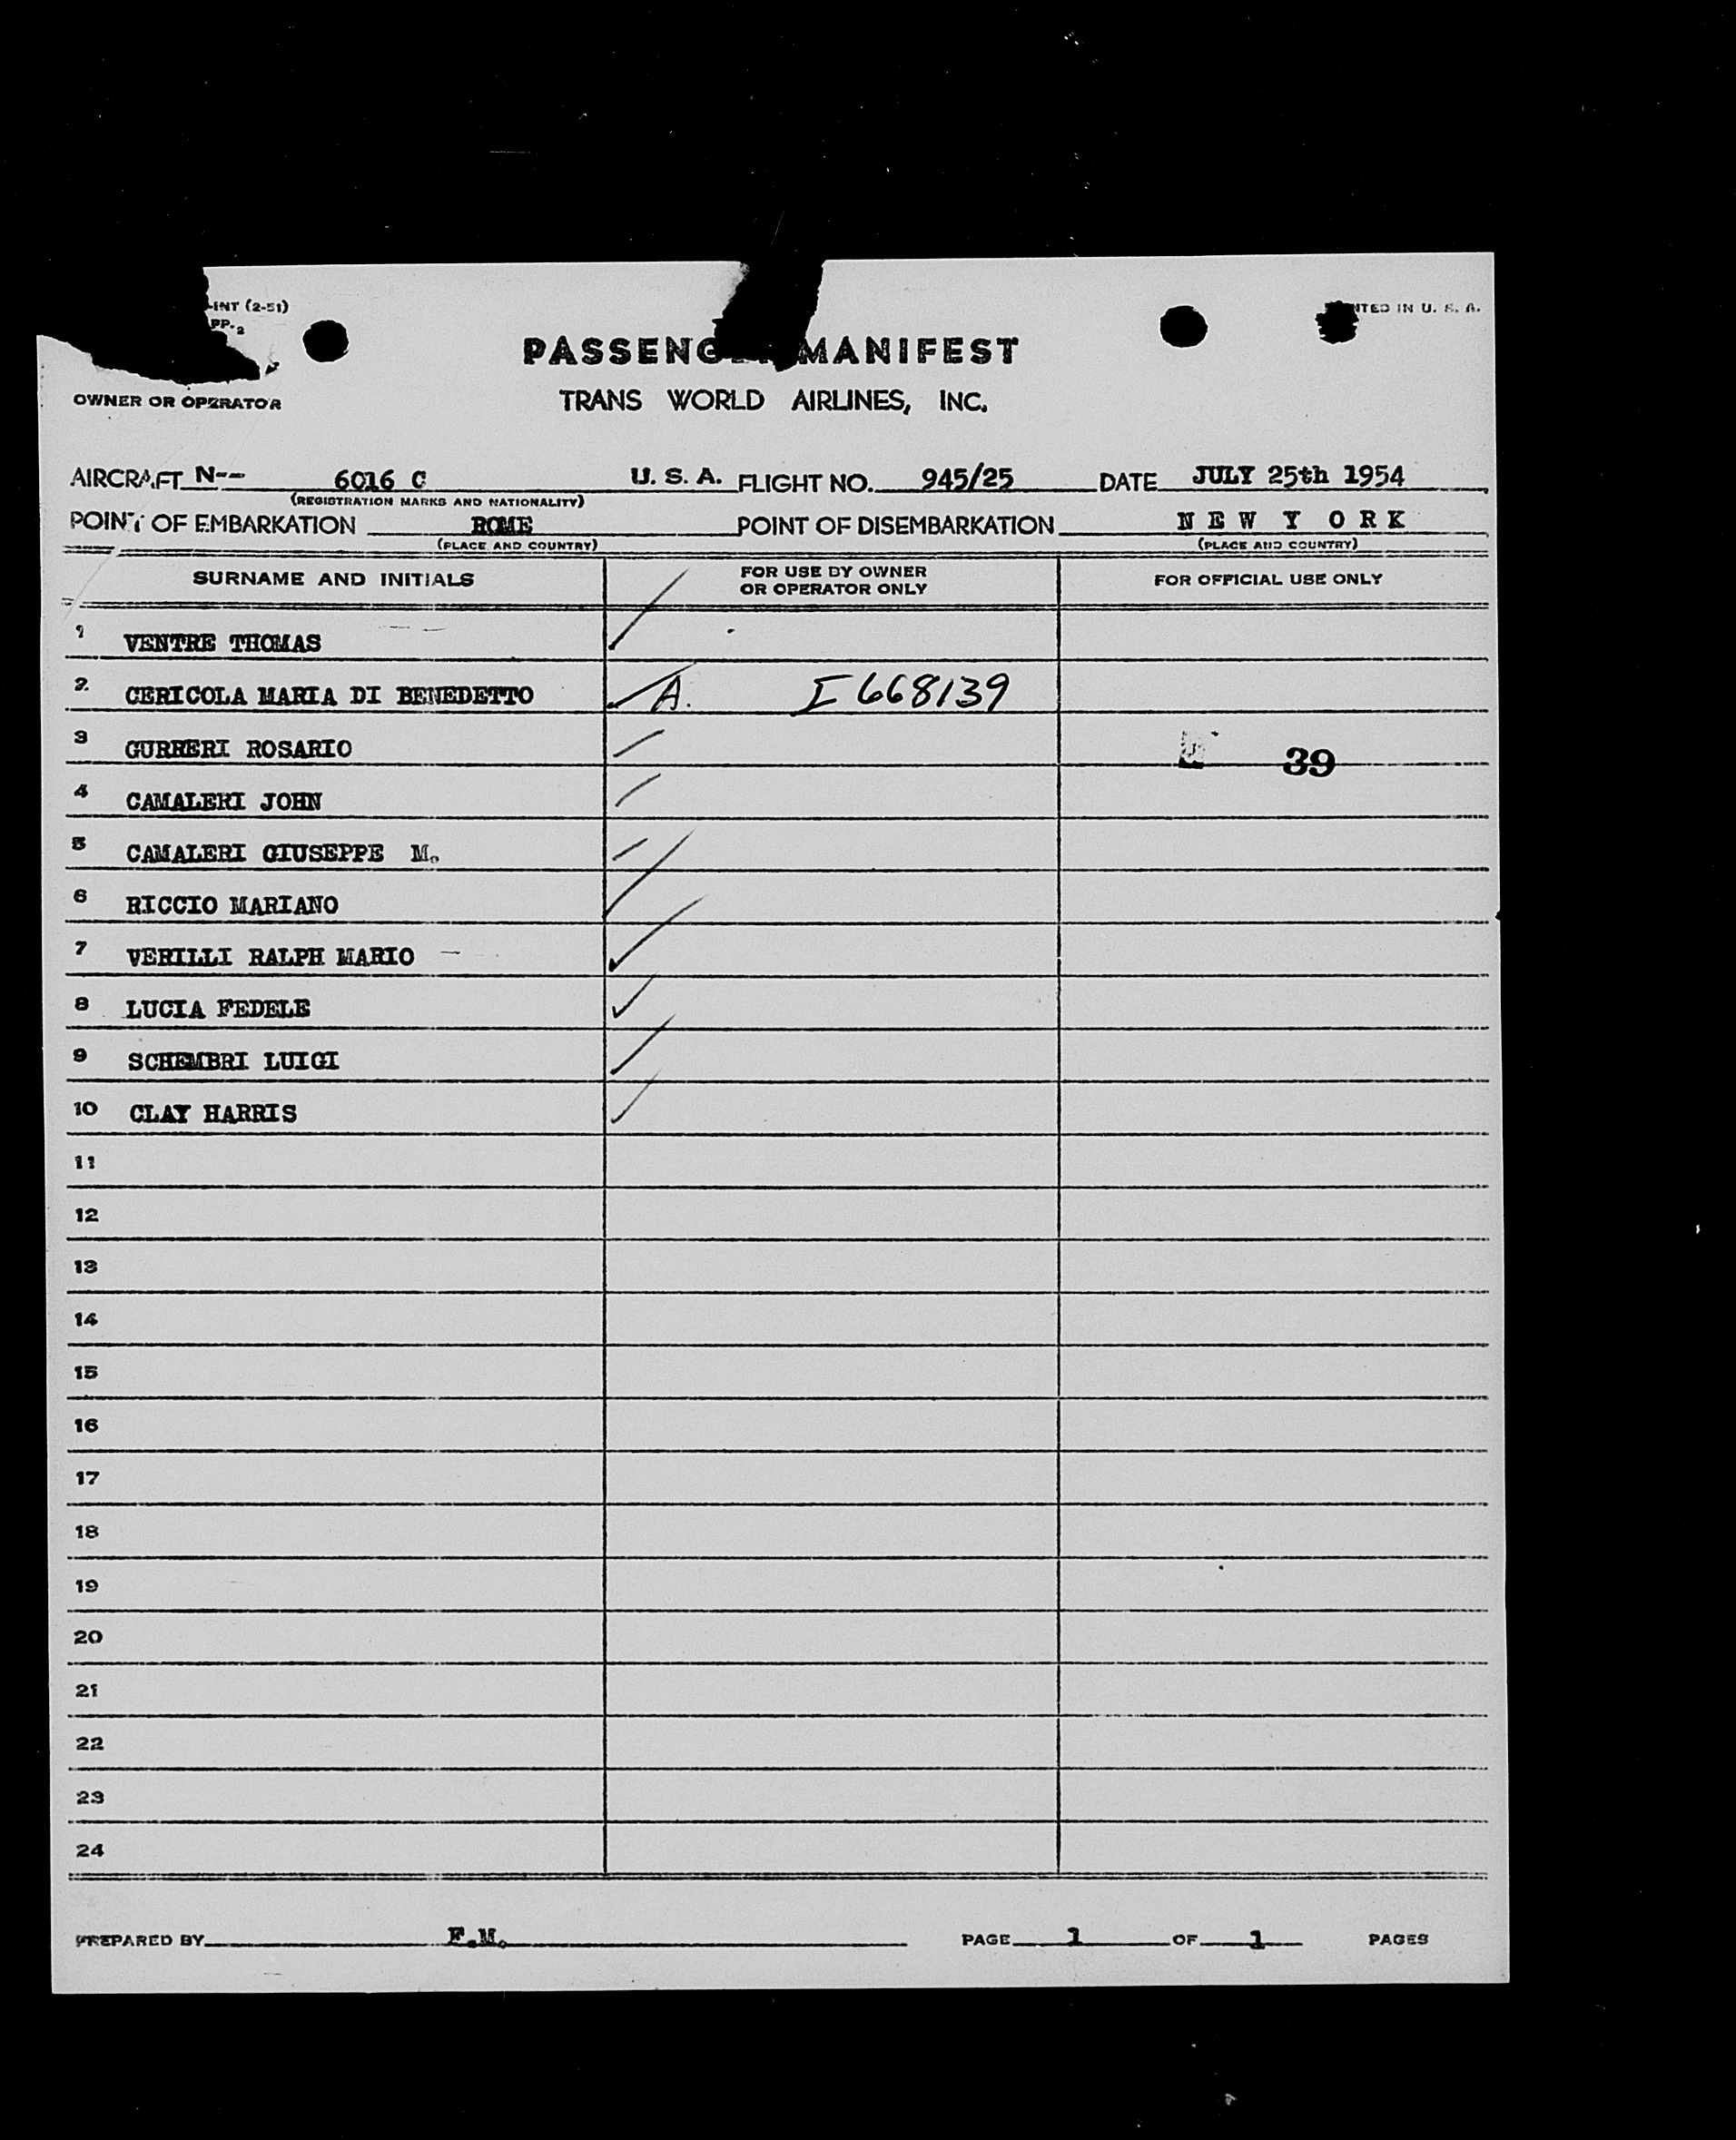 INT (2-51)
PP-2
NTED IN U. S. A.
MANIFEST
OWNER OR OPERATOR
TRANS WORLD AIRLINES, INC.
AIRCRAFT N-- 6016 C U. S. A. FLIGHT NO. 945/25 DATE JULY 25th 1954
(REGISTRATION MARKS AND NATIONALITY)
POINT OF EMBARKATION ROME POINT OF DISEMBARKATION N E W Y O R K
(PLACE AND COUNTRY) (PLACE AND COUNTRY)
SURNAME AND INITIALS FOR USE BY OWNER FOR OFFICIAL USE ONLY
OR OPERATOR ONLY
1 VENTRE THOMAS
2 CERICOLA MARIA DI BENEDETTO A. I 668139
3 GURRERI ROSARIO 39
4 CAMALERI JOHN
5 CAMALERI GIUSEPPE M.
6 RICCIO MARIANO
7 VERILLI RALPH MARIO -
8 LUCIA FEDELE
9 SCHEMBRI LUIGI
10 CLAY HARRIS
11
12
13
14
15
16
17
18
19
20
21
22
23
24
PREPARED BY F.M. PAGE 1 OF 1 PAGES